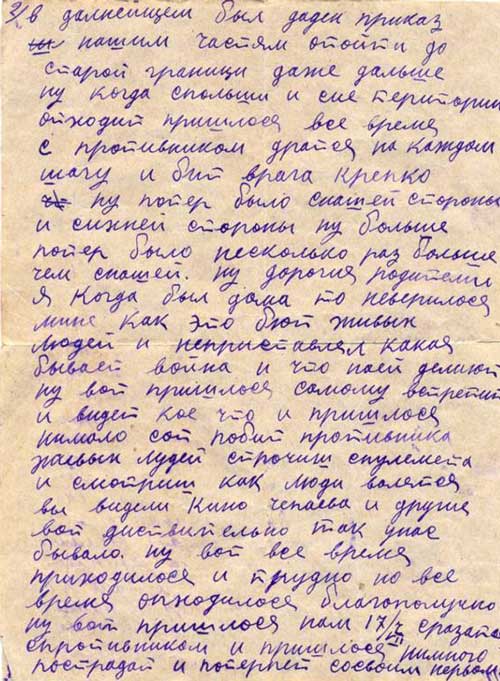 3/ в далнейщем был даден приказ
нашим частям отойти до
старой границы даже дальше
ну когда спольши и сие територии
отходит пришлося все время
с противником дратся на каждом
шагу и бит врага крепко
ну потер было снашей стороны
и сихней стороны ну больше
потер было несколько раз больше
чем снашей. ну дорогия родители
я когда был дома то неверилося
мине как это бют живых
людей и неприставлял какая
бывает война и что наей делиют
ну вот пришлося самому встретит
и видет кое что и пришлося
нимало сот побит противника
живых людей строчиш спулемета
и смотриш как люди валятся
вы видели Кино чепаева и другие
вот диствительно так унас
бывало. ну вот все время
приходилося и трудно но все
время отходилося благополучно
ну вот пришлося нам 17/VII сразатся
спротивником и пришлося нимного
пострадат и потерпет сосвоим первом